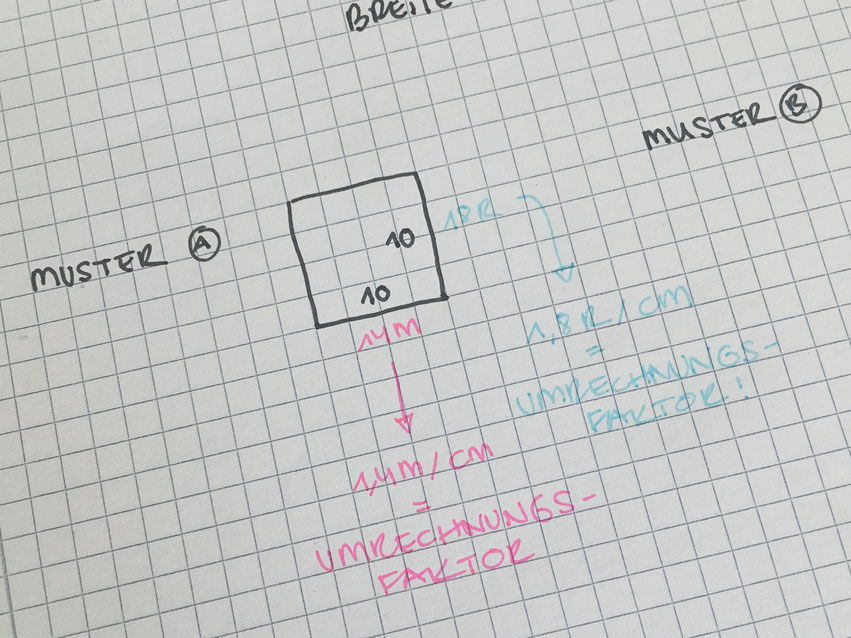 BREITE
MUSTER B
MUSTER A
10
10
18R
14M
1,8R/CM
=
UMRECHNUNGS-
FAKTOR!
1,4M/CM
=
UMRECHNUNGS-
FAKTOR